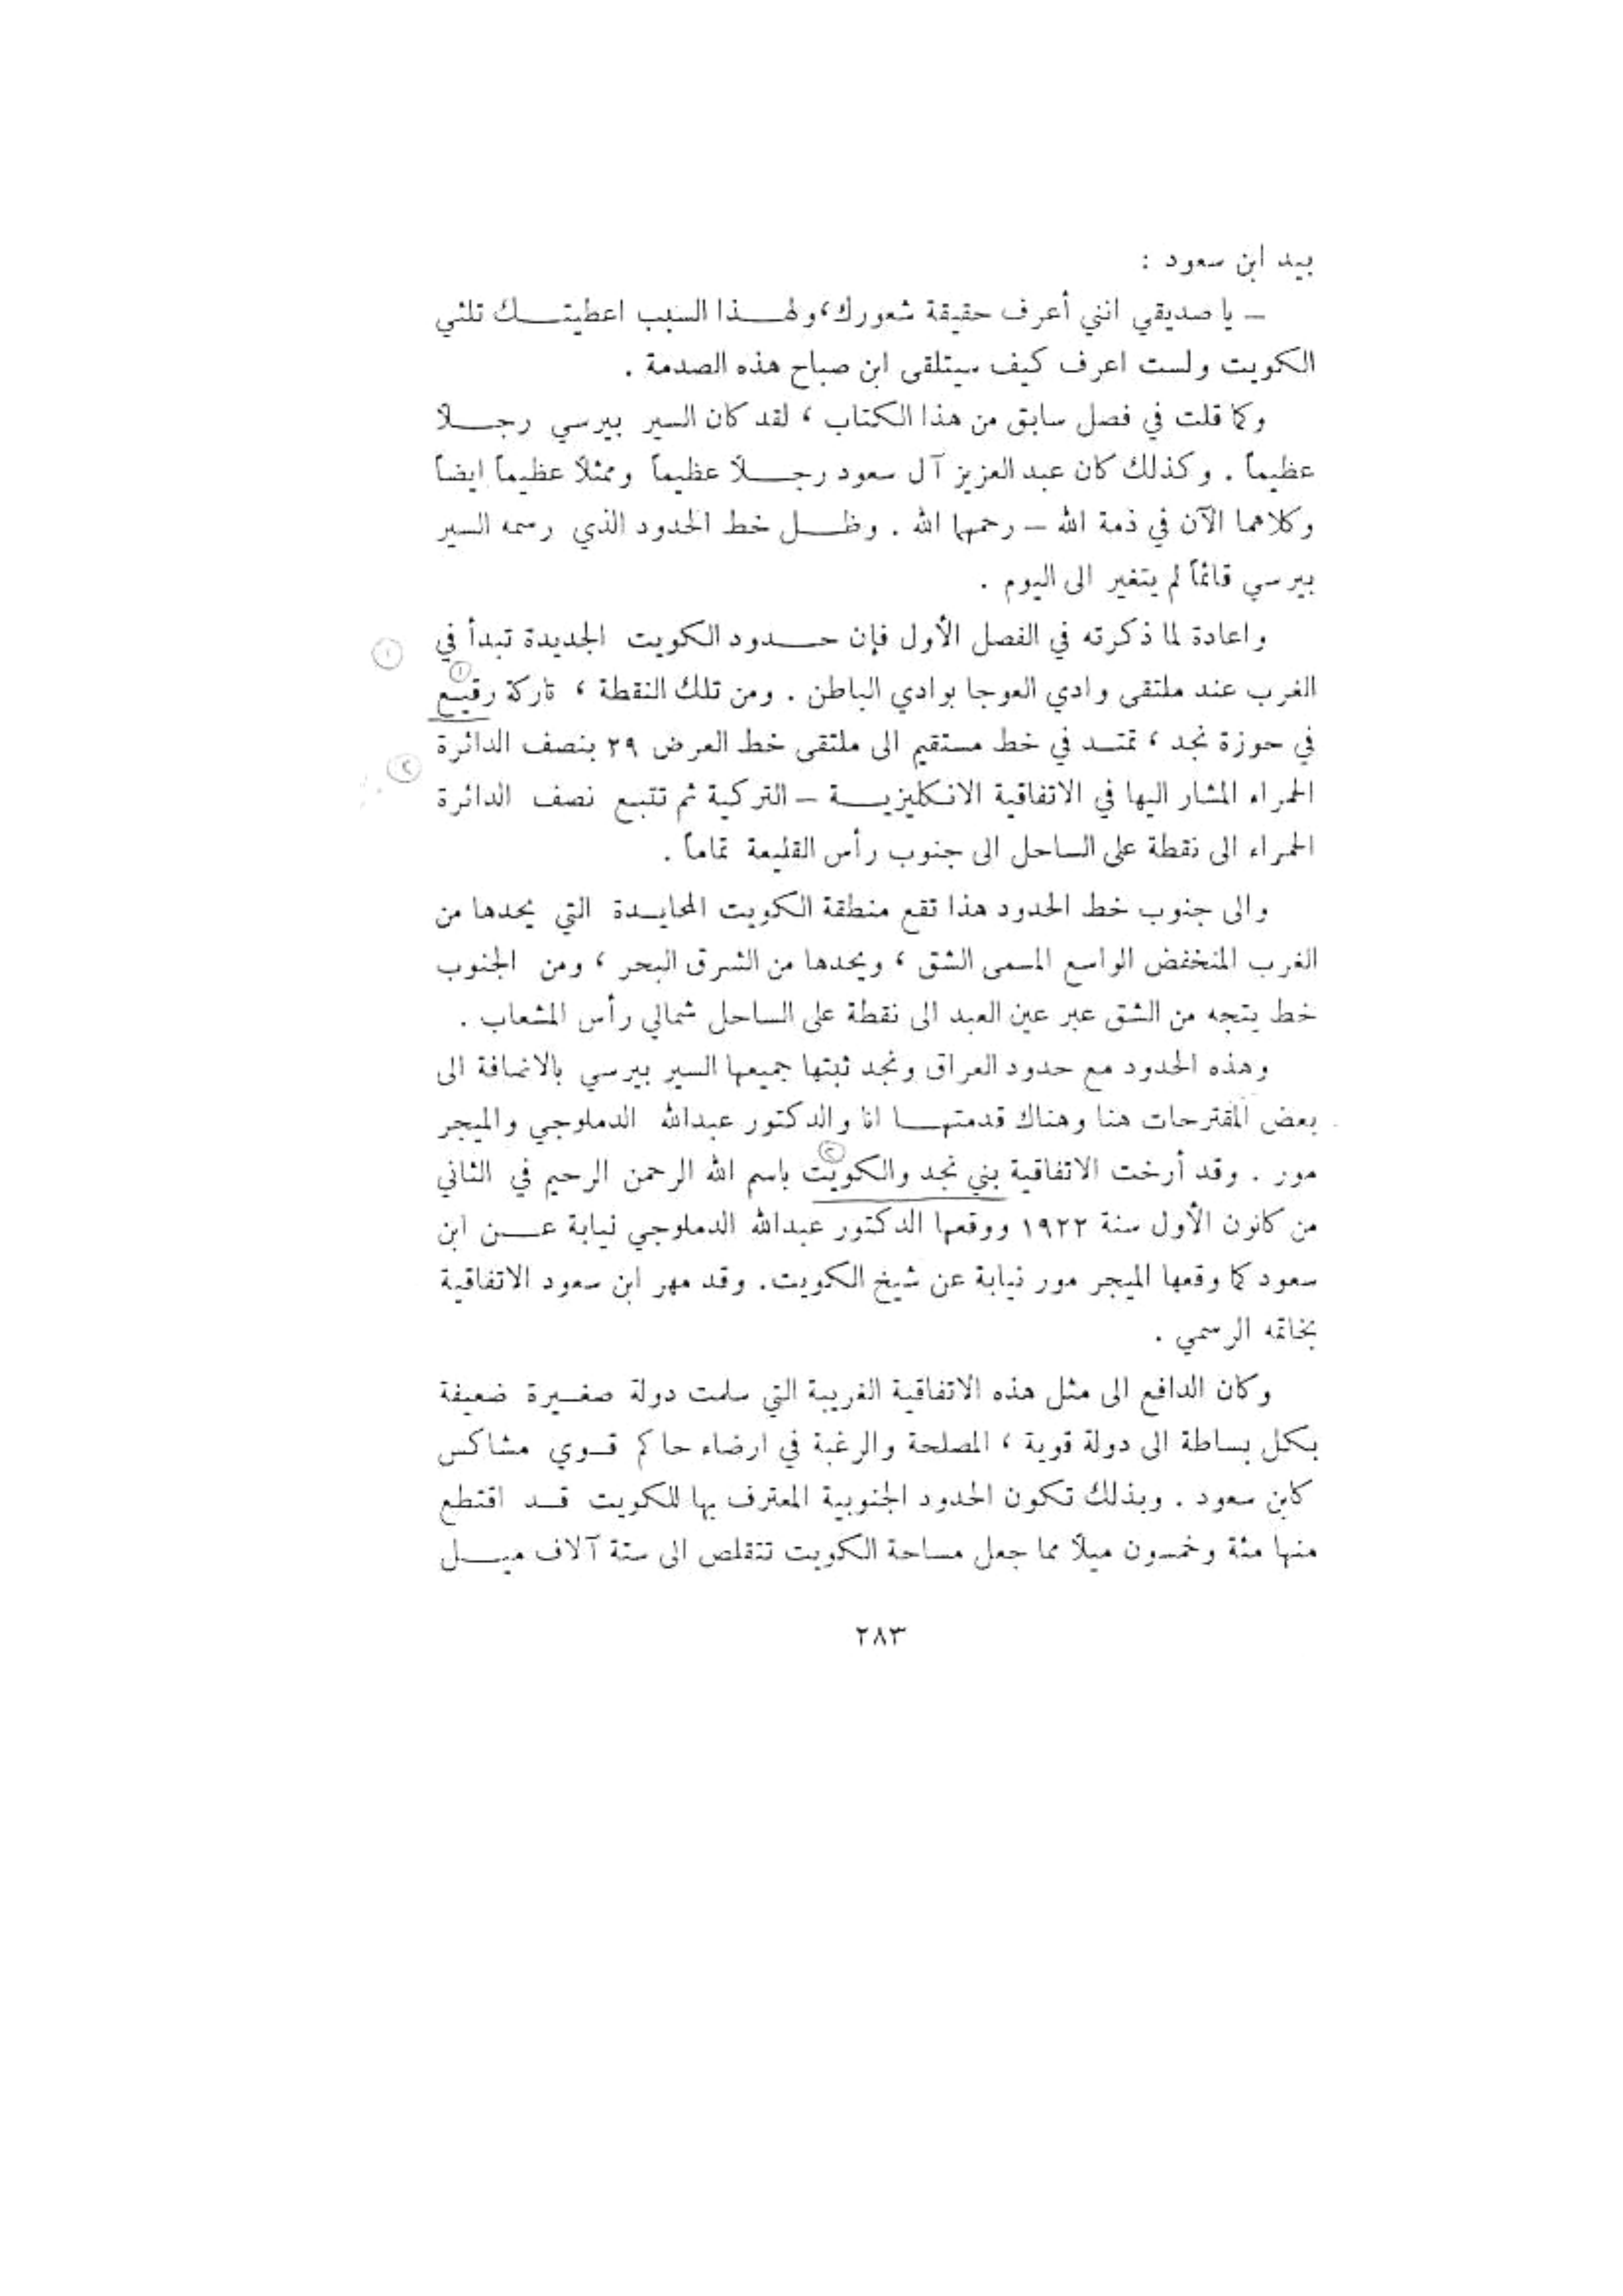 بيد ابن سعود :
– يا صديقي انني أعرف حقيقة شعورك، ولهذا السبب اعطيتك ثلثي
الكويت ولست اعرف كيف سيتلقى ابن صباح هذه الصدمة .
وكما قلت في فصل سابق من هذا الكتاب ، لقد كان السير بيرسي رجلاً
عظيماً . وكذلك كان عبد العزيز آل سعود رجلاً عظيماً وممثلاً عظيماً ايضاً
وكلاهما الآن في ذمة الله – رحمهما الله . وظل خط الحدود الذي رسمه السير
بيرسي قائماً لم يتغير الى اليوم .
واعادة لما ذكرته في الفصل الأول فإن حدود الكويت الجديدة تبدأ في ١
الغرب عند ملتقى وادي العوجا بوادي الباطن . ومن تلك النقطة ، تاركة رقيع ١
في حوزة نجد ، تمتد في خط مستقيم الى ملتقى خط العرض ٢٩ بنصف الدائرة ٢
الحمراء المشار اليها في الاتفاقية الانكليزية – التركية ثم تتبع نصف الدائرة
الحمراء الى نقطة على الساحل الى جنوب رأس القليعة تماماً .
والى جنوب خط الحدود هذا تقع منطقة الكويت المحايدة التي يحدها من
الغرب المنخفض الواسع المسمى الشق ، ويحدها من الشرق البحر ، ومن الجنوب
خط يتجه من الشق عبر عين العبد الى نقطة على الساحل شمالي رأس المشعاب .
وهذه الحدود مع حدود العراق ونجد ثبتها جميعها السير بيرسي بالاضافة الى
بعض المقترحات هنا وهناك قدمتها انا والدكتور عبدالله الدملوجي والميجر
مور . وقد أرخت الاتفاقية بني نجد والكويت ٢ باسم الله الرحمن الرحيم في الثاني
من كانون الأول سنة ١٩٢٢ ووقعها الدكتور عبدالله الدملوجي نيابة عن ابن
سعود كما وقعها الميجر مور نيابة عن شيخ الكويت. وقد مهر ابن سعود الاتفاقية
بخاتمه الرسمي .
وكان الدافع الى مثل هذه الاتفاقية الغريبة التي سلمت دولة صغيرة ضعيفة
بكل بساطة الى دولة قوية ، المصلحة والرغبة في ارضاء حاكم قوي مشاكس
كابن سعود . وبذلك تكون الحدود الجنوبية المعترف بها للكويت قد اقتطع
منها مئة وخمسون ميلاً مما جعل مساحة الكويت تتقلص الى ستة آلاف ميل
٢٨٣